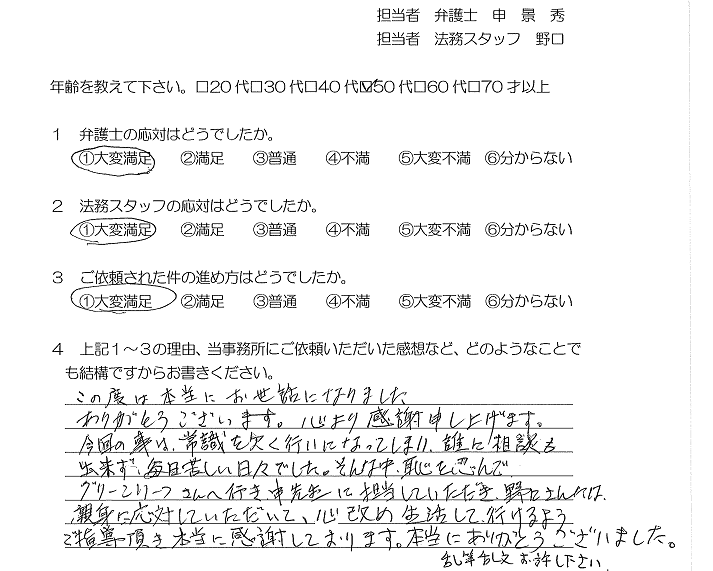 担当者 弁護士 申 景 秀
担当者 法務スタッフ 野口
年齢を教えて下さい。□20代□30代□40代☑50代□60代□70才以上
1 弁護士の応対はどうでしたか。
①大変満足 ②満足 ③普通 ④不満 ⑤大変不満 ⑥分からない
2 法務スタッフの応対はどうでしたか。
①大変満足 ②満足 ③普通 ④不満 ⑤大変不満 ⑥分からない
3 ご依頼された件の進め方はどうでしたか。
①大変満足 ②満足 ③普通 ④不満 ⑤大変不満 ⑥分からない
4 上記1～3の理由、当事務所にご依頼いただいた感想など、どのようなことで
も結構ですからお書きください。
この度は本当にお世話になりました
ありがとうございます。心より感謝申し上げます。
今回の事は、常識を欠く行いになってしまい、誰に相談も
出来ず、毎日苦しい日々でした。そんな中、恥をしのんで
グリーンリーフさんへ行き、申先生に担当していただき、野口さんには、
親身に応対していただいて、心改め生活して行けるよう
ご指導頂き本当に感謝しております。本当にありがとうございました。
乱筆乱文お許し下さい。